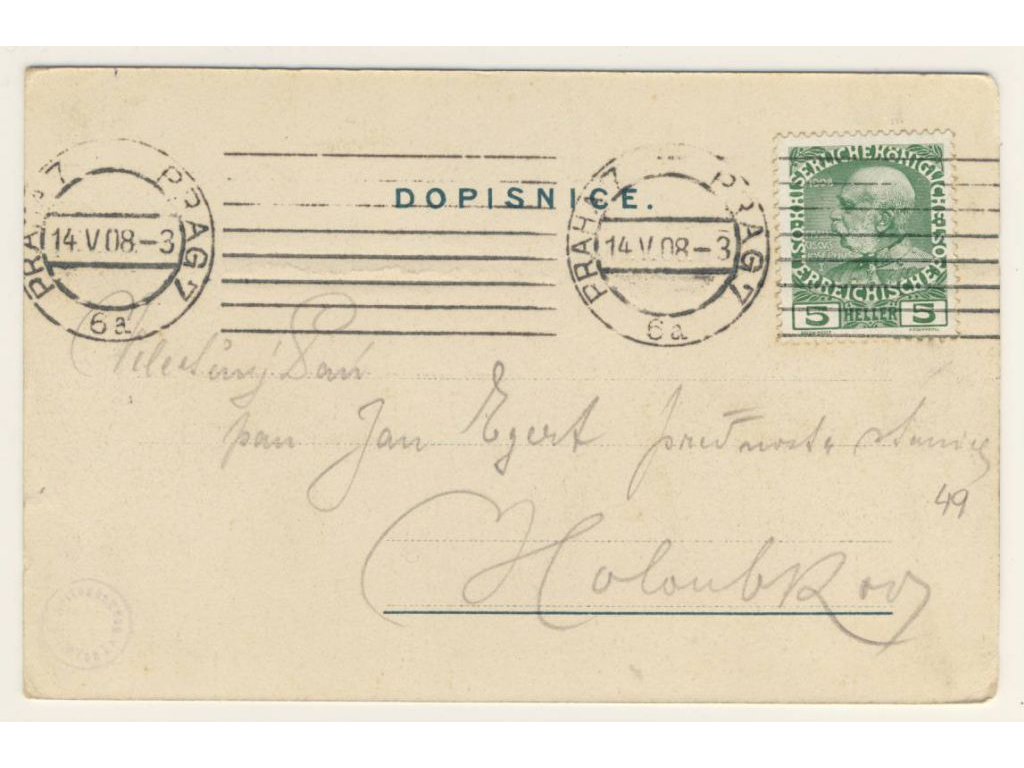 DOPISNICE.
PRAHA 7 PRAG 7
14.V.08.-3
6a
PRAHA 7 PRAG 7
14.V.08.-3
6a
KAISERLICHE KÖNIGLICHE ÖSTERREICHISCHE
5 HELLER 5
Pan
pan Jan Egert přednosta stanice
49
Holoubkov